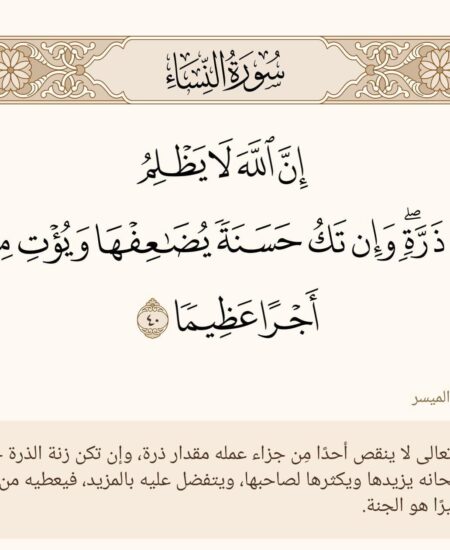 سُورَةُ النِّسَاءِ
إِنَّ ٱللَّهَ لَا يَظۡلِمُ
ذَرَّةٖۖ وَإِن تَكُ حَسَنَةٗ يُضَٰعِفۡهَا وَيُؤۡتِ
أَجۡرًا عَظِيمٗا ٤٠
الميسر
تعالى لا ينقص أحدًا مِن جزاء عمله مقدار ذرة، وإن تكن زنة الذرة
يزيدها ويكثرها لصاحبها، ويتفضل عليه بالمزيد، فيعطيه من
هو الجنة.